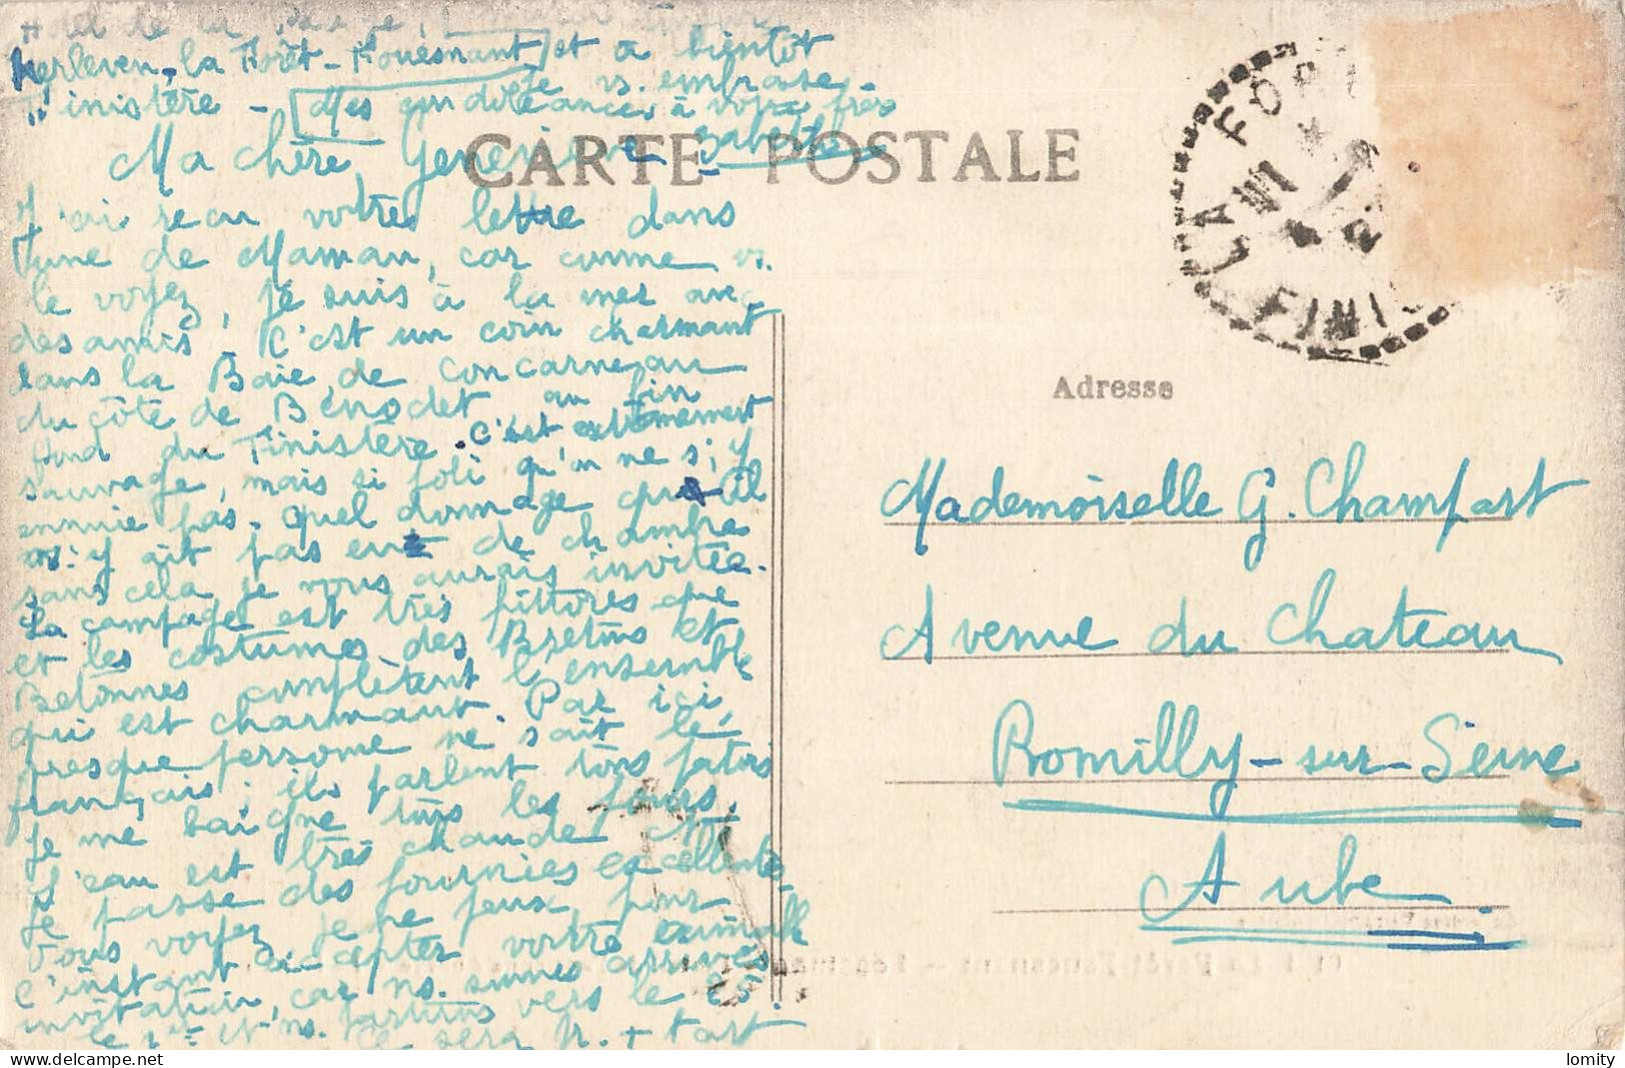 Hotel de la
Kerleven, la Forêt-Fouesnant et à bientôt
Finistère - je v. embrasse
Mes condoléances à votre frère
CARTE POSTALE
Ma chère Geneviève
J'ai reçu votres lettre dans
l'une de Maman, car comme vs.
le voyez, je suis à la mer avec
des amis - C'est un coin charmant
dans la Baie de Concarneau
du côté de Bénodet au fin
fond du Finistère. C'est extrêmement
sauvage, mais si joli qu'on ne s'y
ennuie pas. Quel dommage qu'il
n'y ait pas eu de chambre
sans cela je vous aurais invitée.
La campagne est très pittoresque
et les costumes des Bretons et
Betonnes complètent l'ensemble
qui est charmant. Par ici,
presque personne ne sait le
français; ils parlent tous patois
Je me baigne tous les jours.
L'eau est très chaude
Je passe des journées excellentes
Vous voyez, je ne peux pour
l'instant accepter votre aimable
invitation, car ns. sommes arrivés
le 1er et ns. partons vers le 25.
Ce sera p. + tard
FOR
LA
FINI
Adresse
Mademoiselle G. Champart
Avenue du Chateau
Romilly-sur-Seine
Aube
lomity